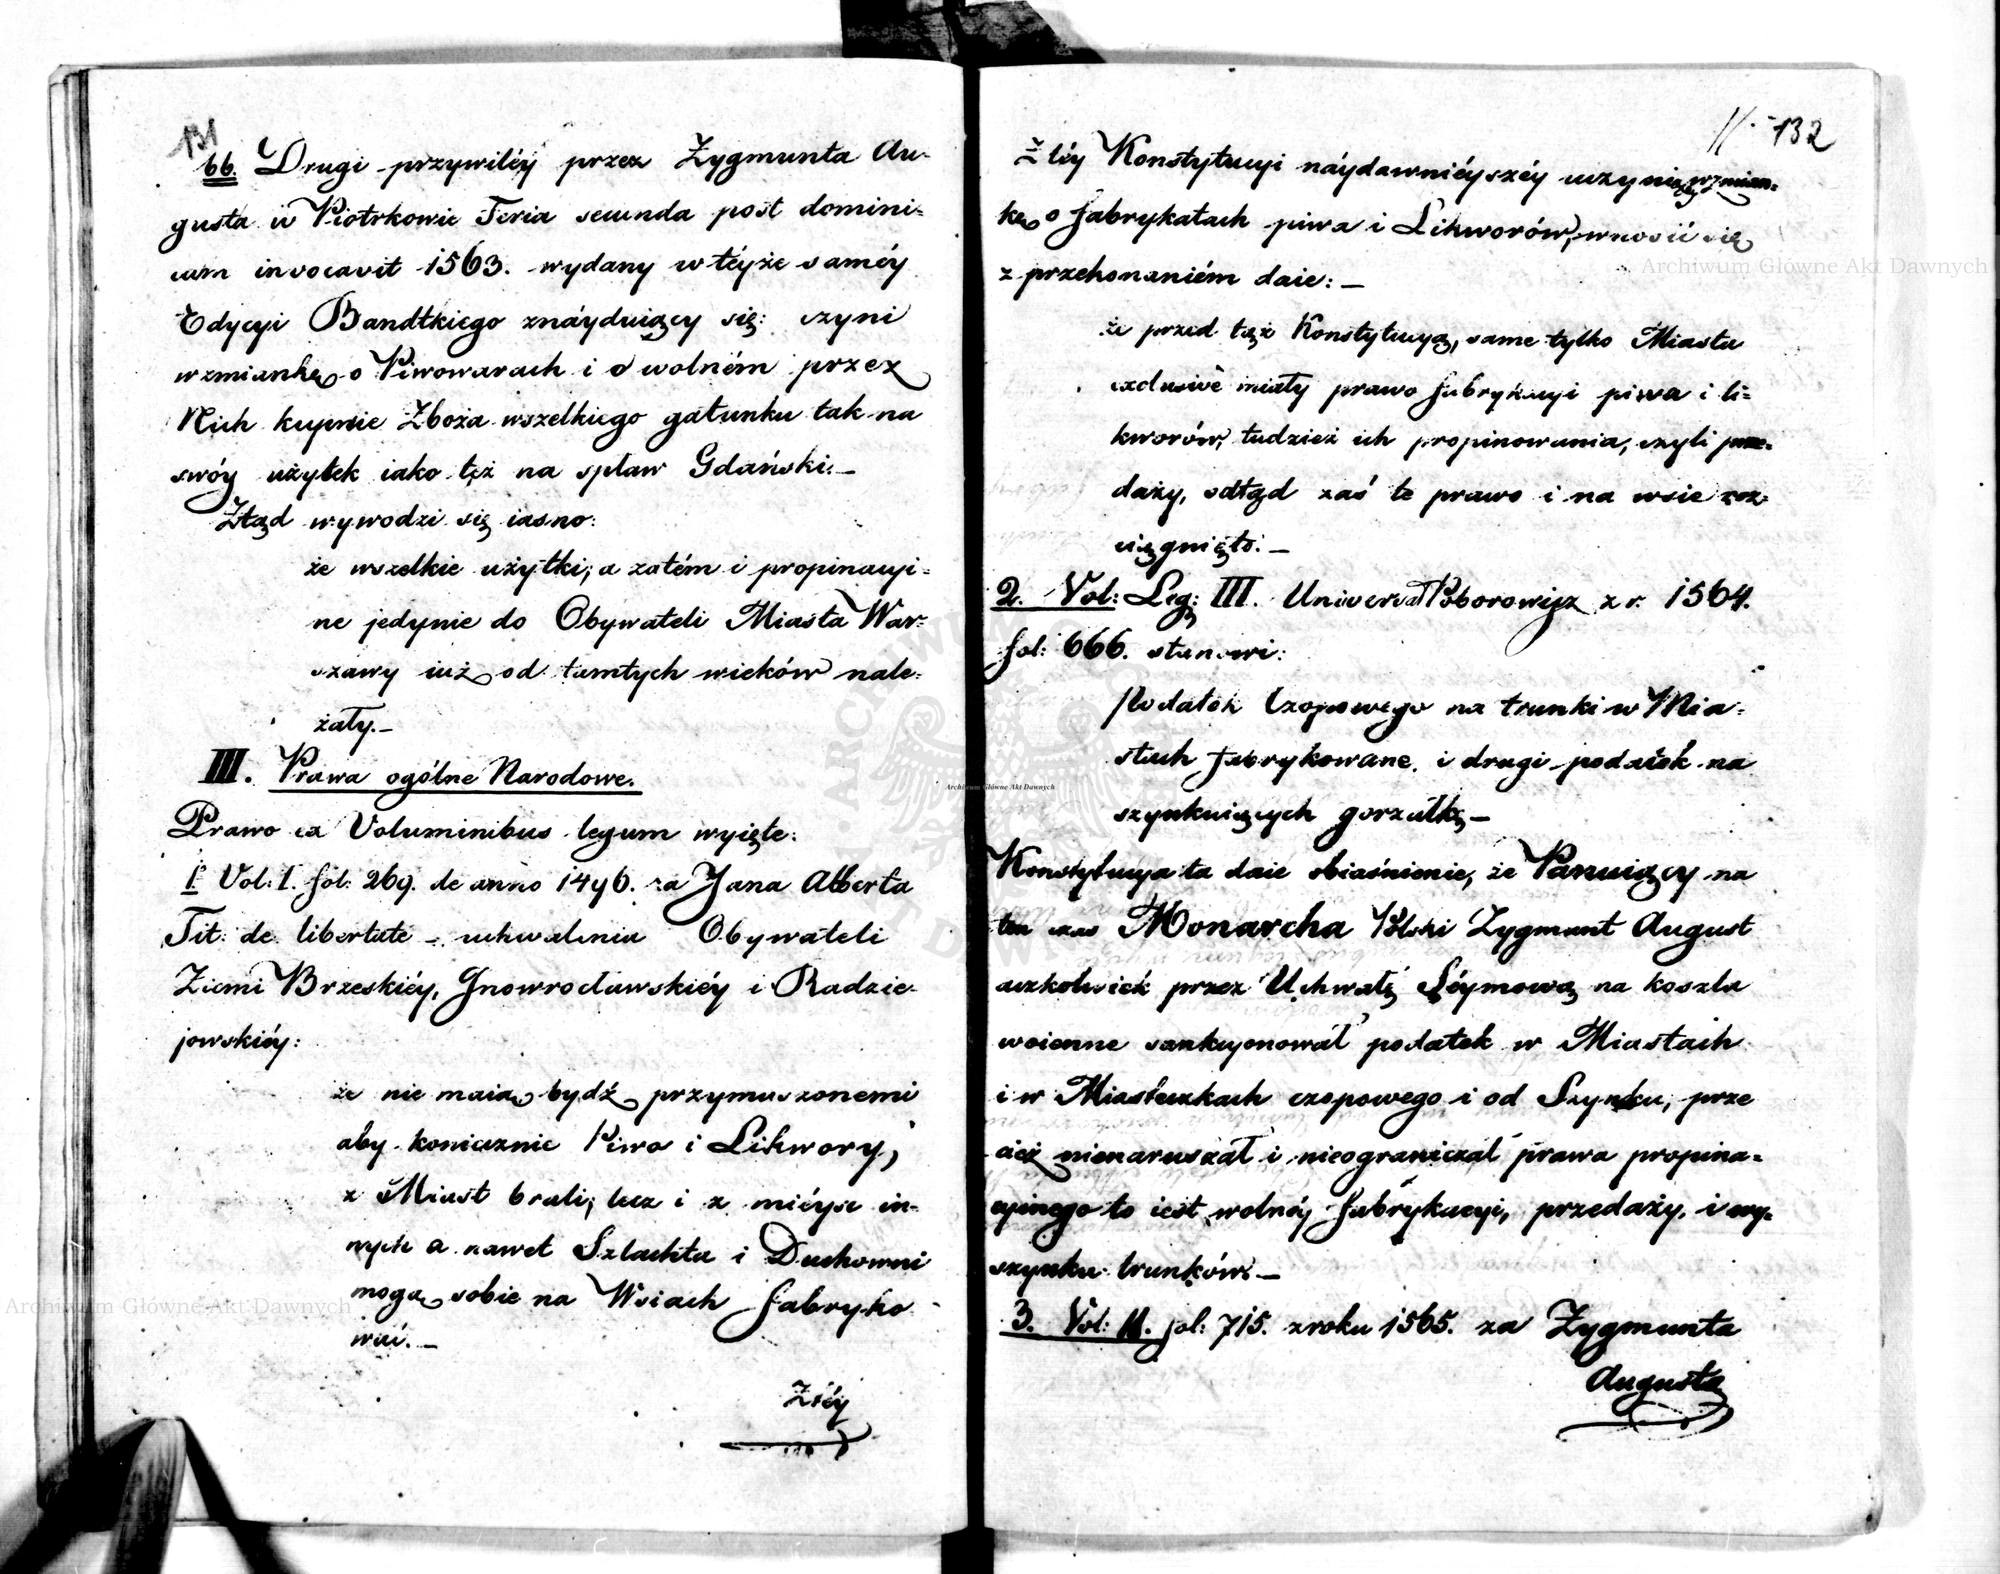 131
66. Drugi przywiléy przez Zygmunta Au-
gusta w Piotrkowie Feria secunda post domini-
cum invocavit 1563. wydany w téyże saméy
Edycyi Bandtkiego znáyduiący się: czyni
wzmiankę o Piwowarach i o wolném przez
Nich kupnie Zboża wszelkiego gatunku tak na
swóy użytek iako też na spław Gdański. —
Ztąd wywodzi się iasno:
że wszelkie użytki, a zatém i propinacyi-
ne jedynie do Obywateli Miasta War-
szawy iuż od tamtych wieków nale-
żały. —
III. Prawa ogólne Narodowe.
Prawo ex Voluminibus legum wyięte:
1. Vol: I. fol: 269. de anno 1496. za Jana Alberta
Tit: de libertate — uchwalenia Obywateli
Ziemi Brzeskiéy, Jnowrocławskiéy i Radzie-
jowskiéy:
że nie maią bydź przymuszonemi
aby koniecznie Piwo i Likwory,
z Miast brali, lecz i z mieysc in-
nych a nawet Szlachta i Duchowni
mogą sobie na Wsiach fabryko-
wać. —
Ztéy
11. 132
Z téy Konstytucyi náydawniéyszéy uczyniona wzmian-
ka o fabrykatach piwa i Likworów, wnosić się
z przekonaniém daie: —
że przed tąż Konstytucyą, same tylko Miasta
exclusive miały prawo fabrykacyi piwa i li-
kworów, tudzież ich propinowania, czyli prze-
daży, odtąd zaś te prawo i na wsie roz-
ciągnięto. —
2. Vol: Leg: III. Universał Poborowy z r. 1564.
fol: 666. stanowi:
Podatek Czopowego na trunki w Mia-
stach fabrykowane, i drugi podatek na
szynkuiących gorzałkę —
Konstytucya ta daie obiaśnienie, że Panuiący na
ten czas Monarcha Polski Zygmunt August
aczkolwiek przez Uchwałę Séymową na koszta
woienne sankcyonował podatek w Miastach
i w Miasteczkach czopowego i od Szynku, prze
cież nienaruszał i nieograniczał prawa propina-
cyinego to iest wolnéy fabrykacyi, przedaży, i wy-
szynku trunków. —
3. Vol: II. fol: 715. z roku 1565. za Zygmunta
Augusta
Archiwum Główne Akt Dawnych
Archiwum Główne Akt Dawnych
Archiwum Główne Akt Dawnych